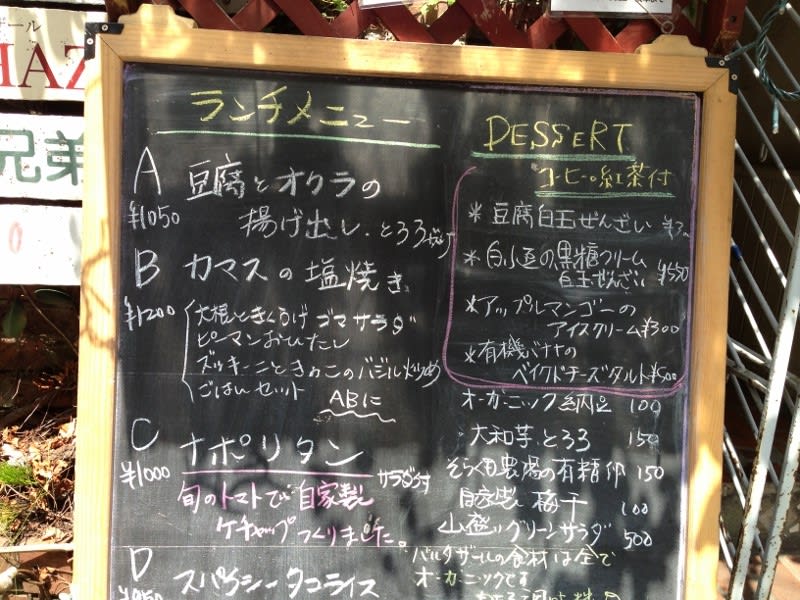 ランチメニュー
A 豆腐とオクラの
¥1050 揚げ出し、とろろがけ
B カマスの塩焼き
¥1200 大根ときくらげ ゴマサラダ
ピーマンおひたし
ズッキーニときのこのバジル炒め
ごはんセット ABに
C ナポリタン
¥1000 サラダ付
旬のトマトで自家製
ケチャップつくりました。
D スパイシータコライス
DESSERT
コーヒーor紅茶付
*豆腐白玉ぜんざい
*白小豆の黒糖クリーム
白玉ぜんざい
*アップルマンゴーの
アイスクリーム¥300
*有機バナナの
ベイクドチーズタルト¥500
オーガニック納豆 100
大和芋とろろ 150
そらくも農場の有精卵 150
自家製梅干 100
山盛りグリーンサラダ 500
バルタザールの食材は全て
オーガニックです
兄弟